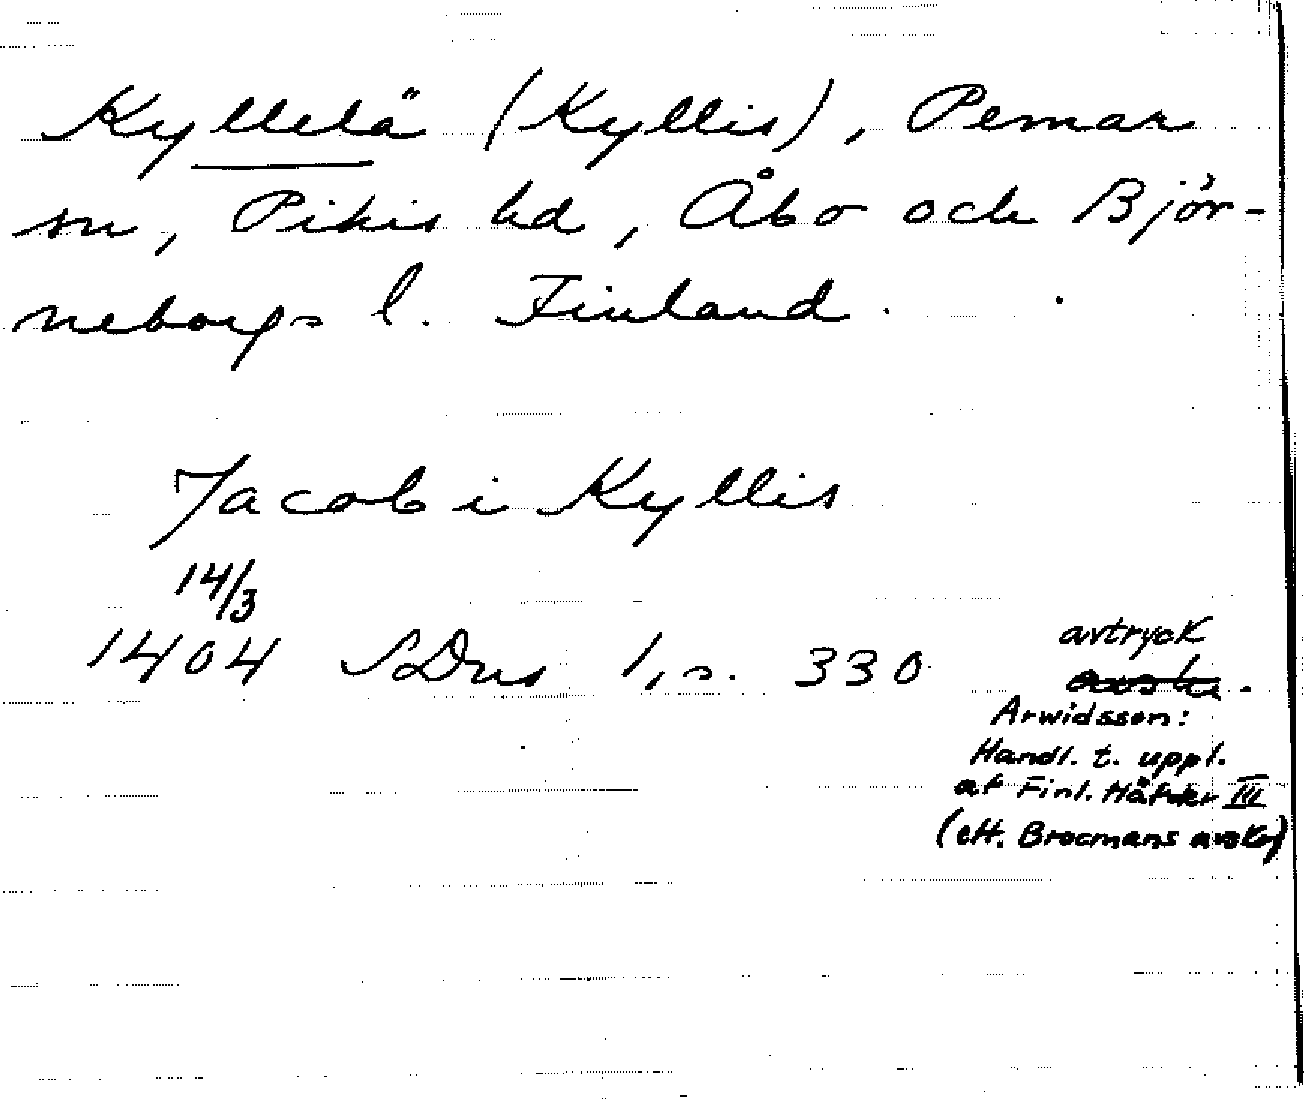 Kyllelä (Kyllis), Pemar
sn, Pikis hd, Åbo och Björ-
neborgs l. Finland.
Jacob i Kyllis
14/3
1404 SDns 1, s. 330
avtryck
avskr.
Arwidsson:
Handl. t. uppl.
af Finl. Häfder III
(eft. Brocmans avskr)